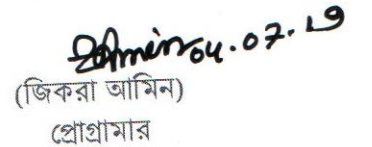 04.07.19
(জিকরা আমিন)
প্রোগ্রামার